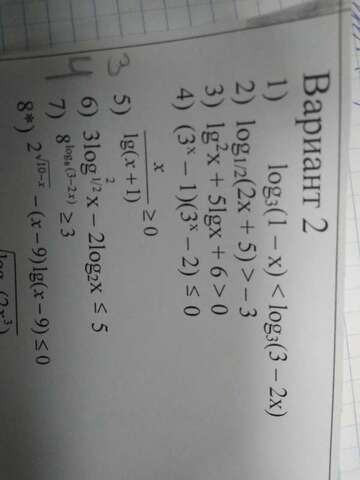 Вариант 2
1) log₃(1 − x) < log₃(3 − 2x)
2) log₁/₂(2x + 5) > − 3
3) lg²x + 5lgx + 6 > 0
4) (3ˣ − 1)(3ˣ − 2) ≤ 0
3
5) x / lg(x + 1) ≥ 0
6) 3log²₁/₂x − 2log₂x ≤ 5
4
7) 8^log₈(3−2x) ≥ 3
8*) 2^√(10−x) − (x − 9)lg(x − 9) ≤ 0